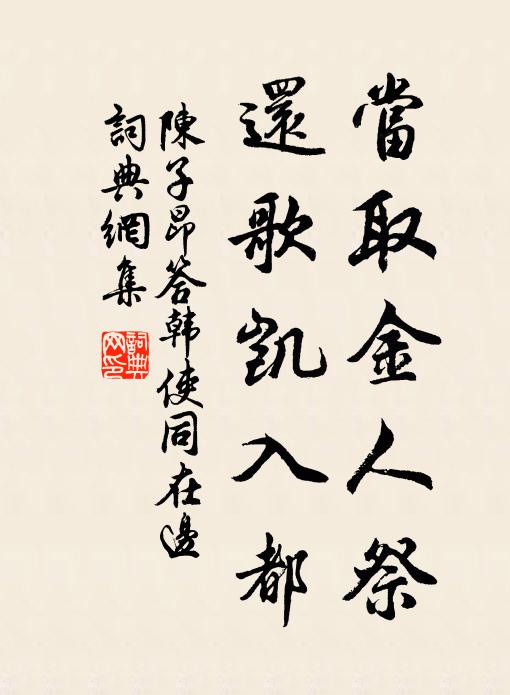 當取金人祭
還歌凱入都
陳子昂答韩使同在邊
詞典網集
詞典
网印